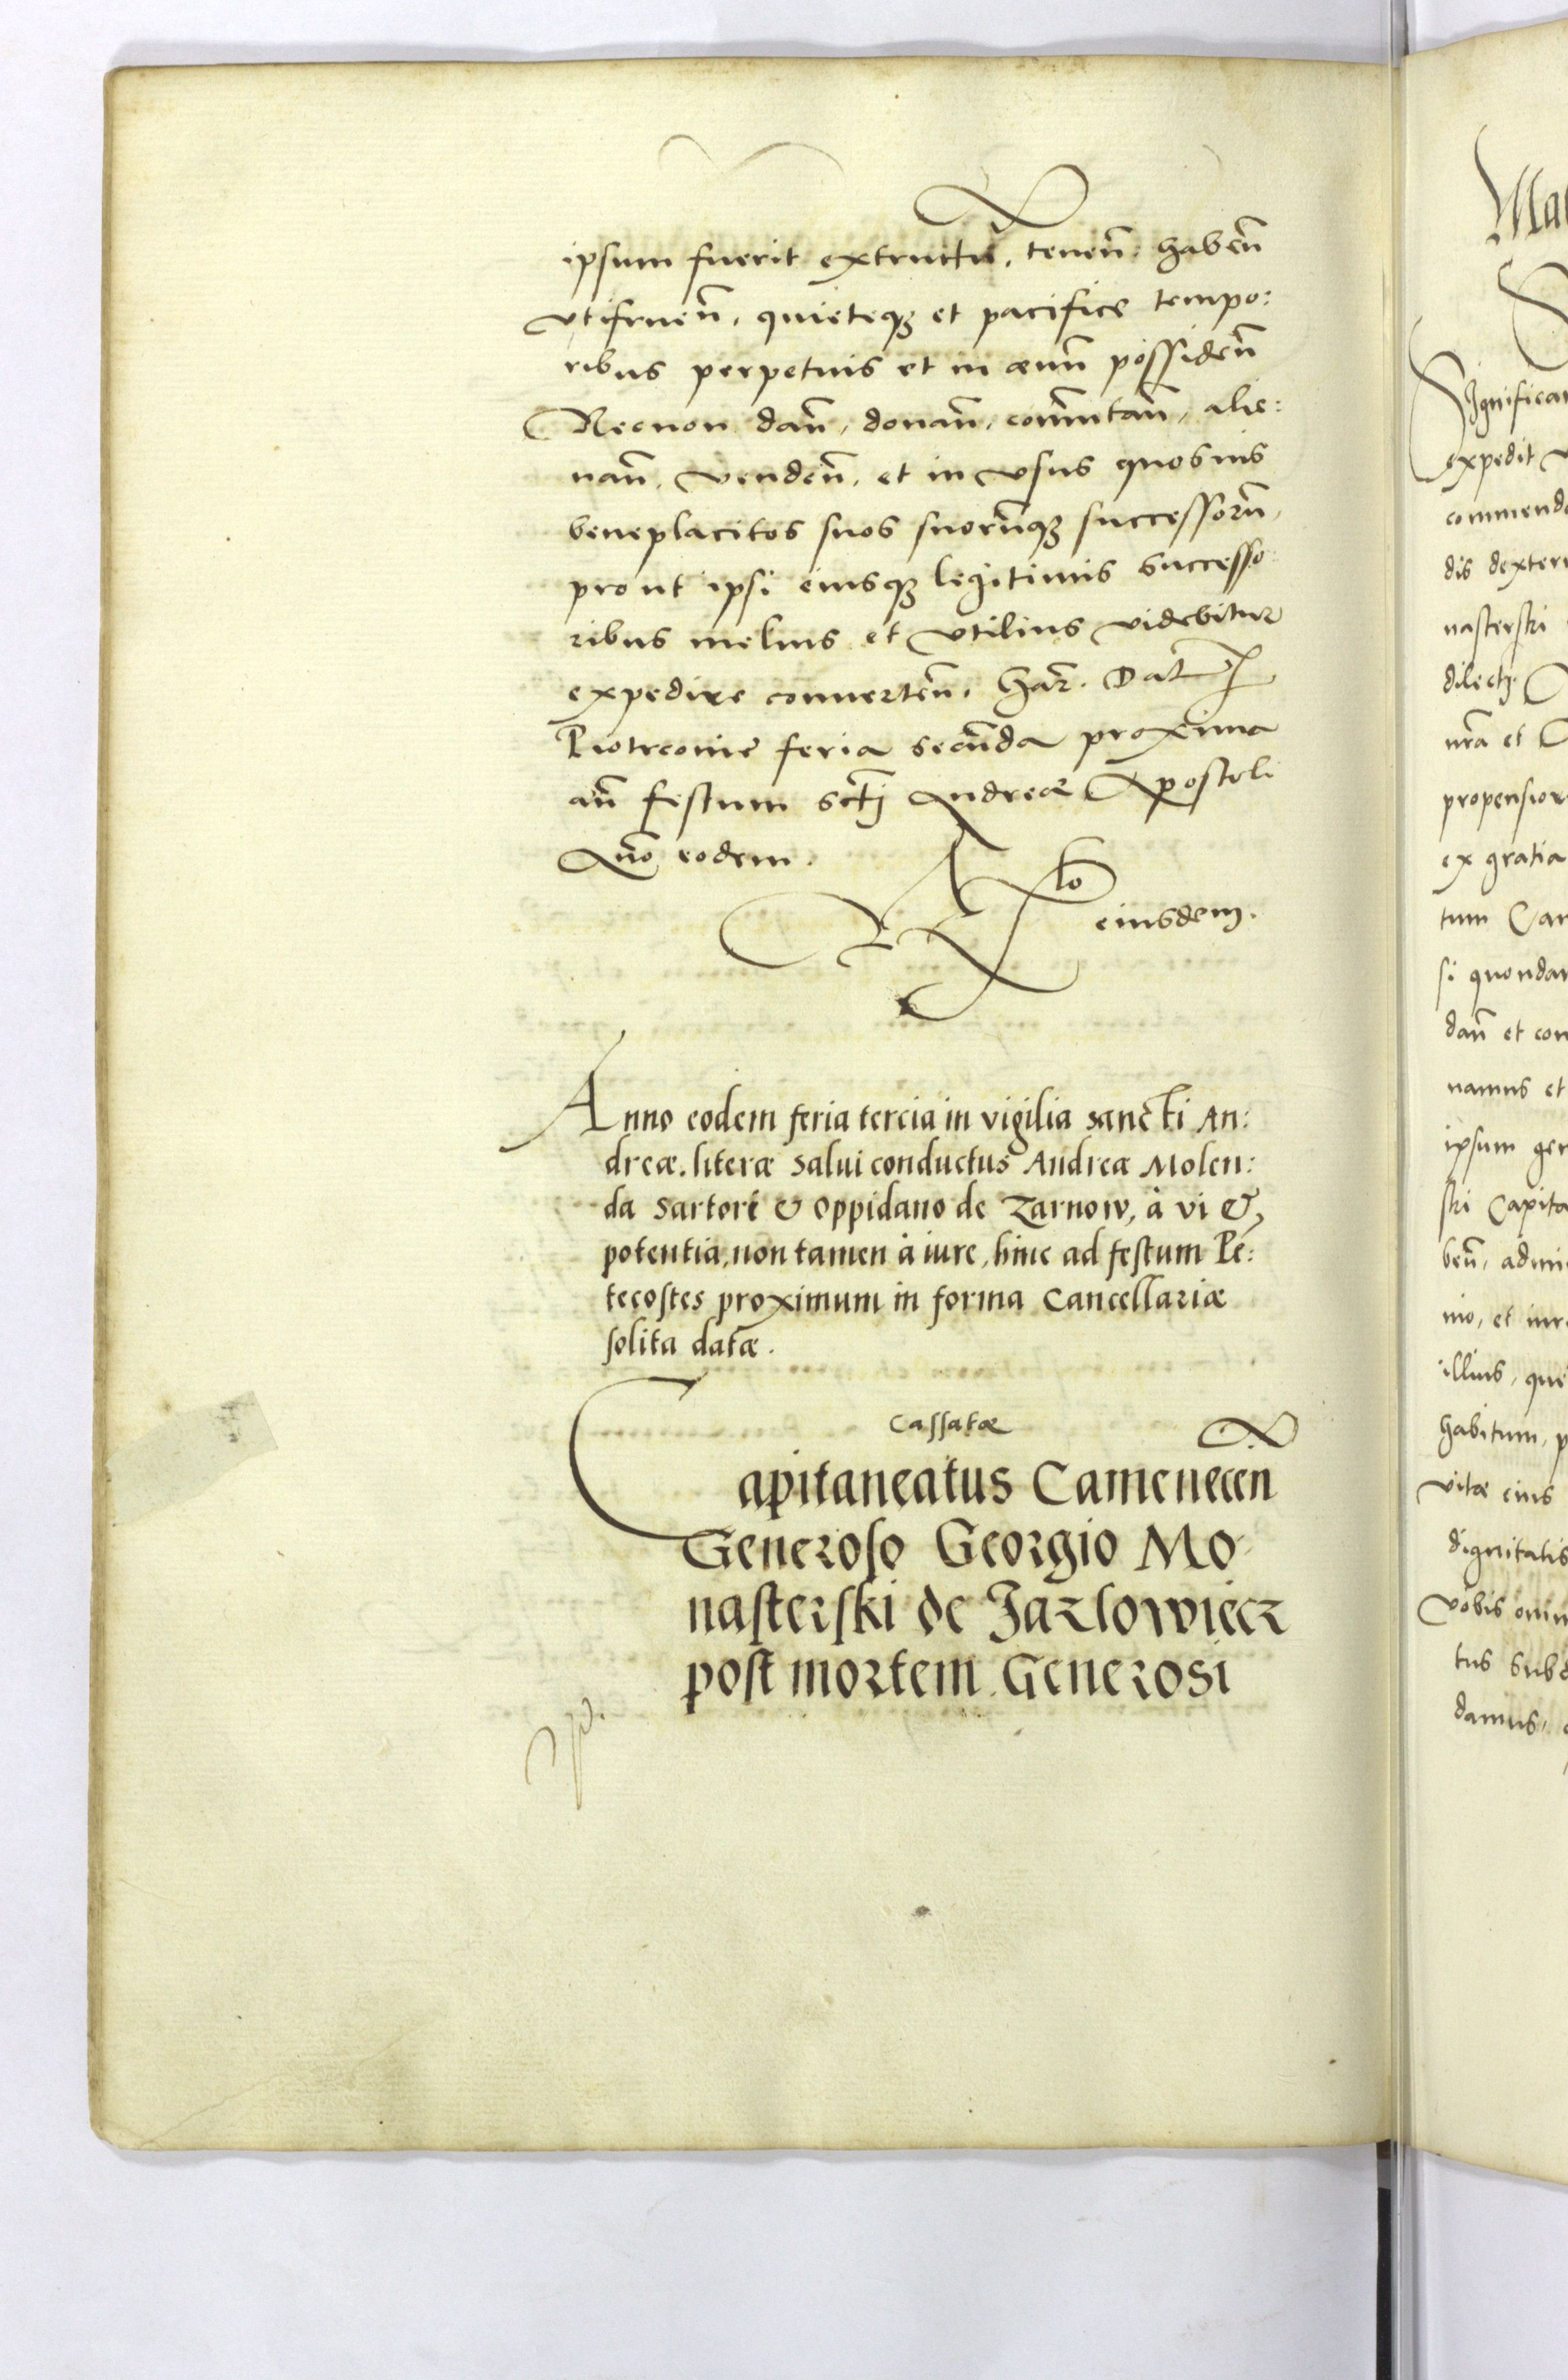 ipsum fuerit extructū, tenen̄. haben̄
vtifruen̄, quieteqȝ et pacifice tempo:
ribus perpetuis et in æuū possiden̄
Necnon dan̄, donan̄, com̄utan̄, alie:
nan̄, venden̄, et in vsus quosuis
beneplacitos suos suorūqȝ successorū,
prout ipsi eiusqȝ legitimis successo
ribus melius et vtilius videbitur
expedire conuerten̄. Har̄. Dat
Piotrcouiæ feria secūda proxima
an̄ festum sctj Andreæ Apostoli
Ano eodem.
Rlo
eiusdem.
Anno eodem feria tercia in vigilia sancti An:
dreæ. literæ salui conductus Andreæ Molen:
da sartori & oppidano de Zarnow, à vi &
potentia, non tamen à iure, hinc ad festum Pē:
tecostes proximum in forma Cancellariæ
solita datæ.
Cassatæ
Capitaneatus Camenecen
Generoso Georgio Mo
nasterski de Jazlowiecz
post mortem Generosi
Mat
Significa
expedit v
commenda
dis dexter
nasterski
dilectj.
nrā et
propension
ex gratia
tum Ca
si quonda
dan̄ et con
namus et
ipsum gen
ski Capita
ben̄, admi
nio, et iur
illius, que
habitum, p
vitæ eius
dignitatis
vobis omn
tus sub
damus,